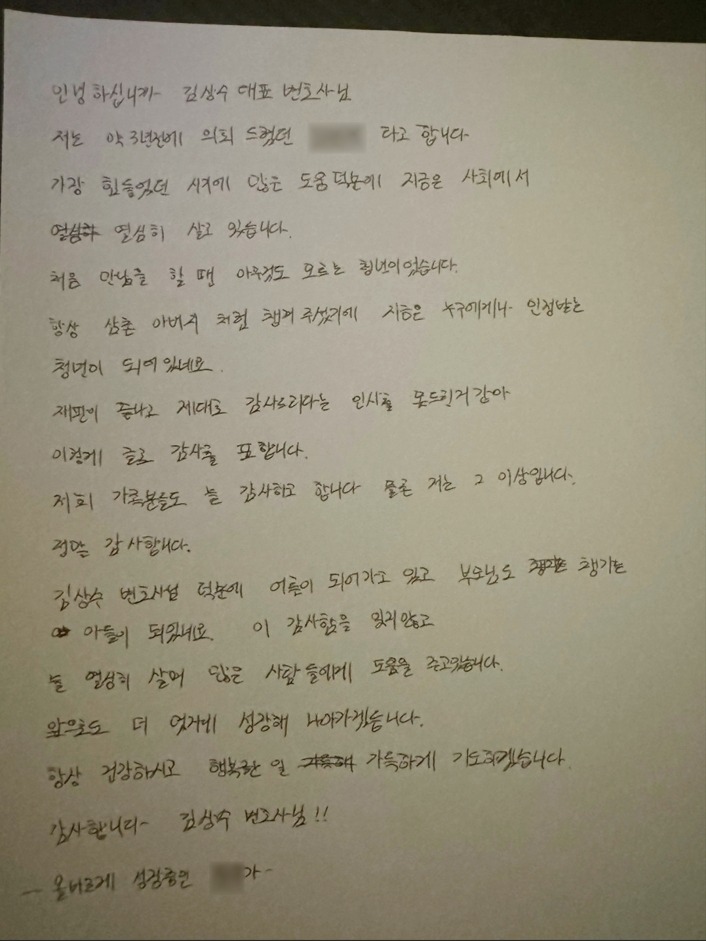 안녕하십니까- 김상수 대표 변호사님
저는 약 3년전에 의뢰 드렸던 타고 합니다-
가장 힘들었던 시기에 많은 도움 덕분에 지금은 사회에서
열심히 열심히 살고 있습니다.
처음 만남을 할 때 아무것도 모르는 청년이었습니다.
항상 삼촌 아버지 처럼 챙겨주셨기에 지금은 누구에게나 인정받는
청년이 되어있네요.
재판이 끝나고 제대로 감사드리다는 인사를 못드린거 같아
이렇게 글로 감사를 표합니다.
저희 가족분들도 늘 감사하고 합니다 물론 저는 그 이상입니다.
정말 감사합니다.
김상수 변호사님 덕분에 어른이 되어가고 있고 부모님도 챙기는
아들이 되있네요. 이 감사함을 잊지않고
늘 열심히 살며 많은 사람들에게 도움을 주고있습니다.
앞으로도 더 멋지게 성장해 나아가겠습니다.
항상 건강하시고 행복한 일 가득하게 기도하겠습니다.
감사합니다- 김상수 변호사님!!
- 올바르게 성장중인 가-